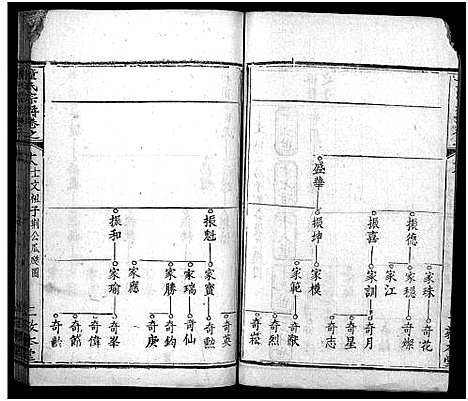 盛華
振德
振喜
振坤
家珠
家穩
家江
家訓
家模
家範
奇花
奇燦
奇月
奇星
奇志
奇猷
奇烈
奇崧
氏宗譜卷之
士文祖子
公瓜瓞圖
振魁
振和
家寶
家瑞
家勝
家應
家瑜
奇英
奇勲
奇仙
奇鈞
奇庚
奇峯
奇偉
奇節
奇齡